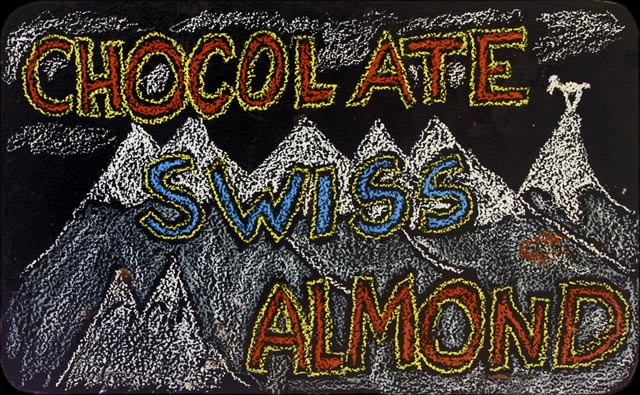 CHOCOLATE
SWISS
ALMOND